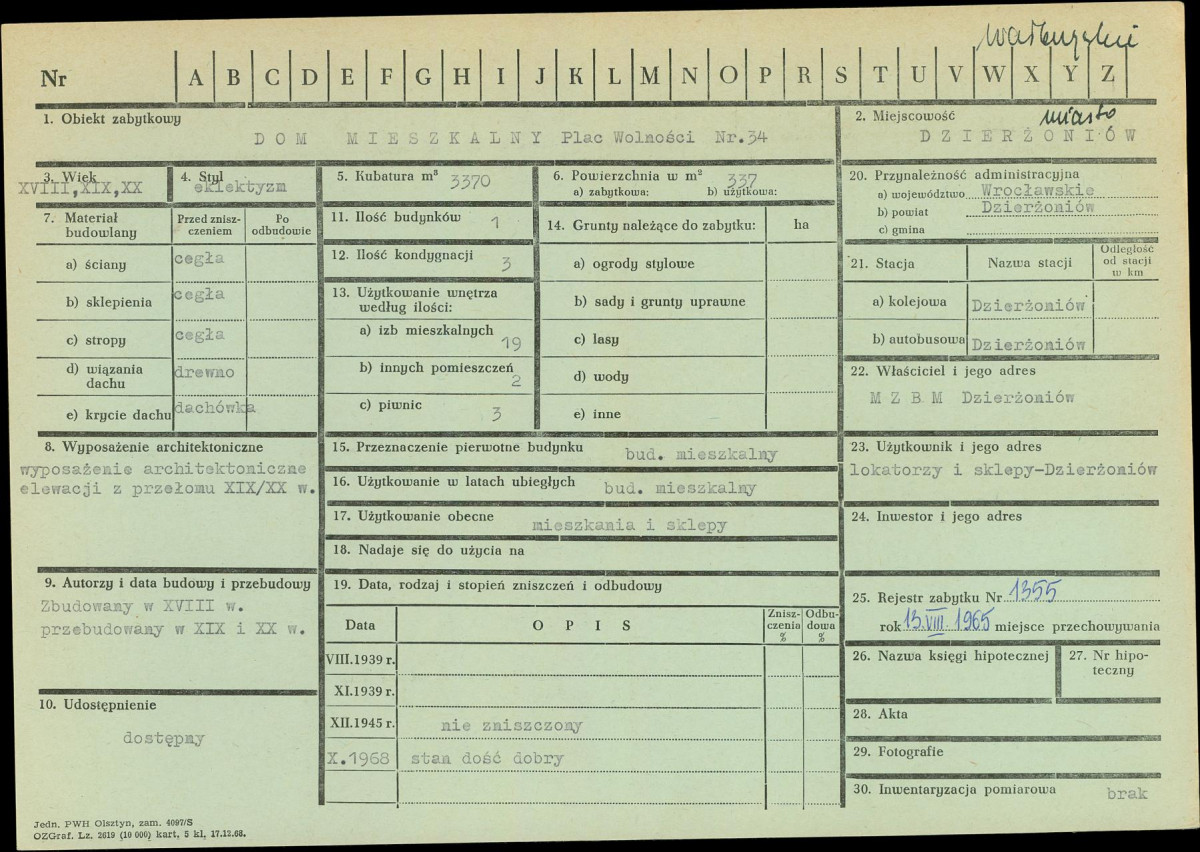 wałbrzyskie
Nr A B C D E F G H I J K L M N O P R S T U V W X Y Z
1. Obiekt zabytkowy
DOM MIESZKALNY Plac Wolności Nr.34
2. Miejscowość miasto
DZIERŻONIÓW
3. Wiek
XVIII,XIX,XX
4. Styl
eklektyzm
5. Kubatura m³ 3370
6. Powierzchnia w m² 337
a) zabytkowa: b) użytkowa:
20. Przynależność administracyjna
a) województwo Wrocławskie
b) powiat Dzierżoniów
c) gmina
7. Materiał budowlany
Przed zniszczeniem
Po odbudowie
a) ściany cegła
b) sklepienia cegła
c) stropy cegła
d) wiązania dachu drewno
e) krycie dachu dachówka
11. Ilość budynków 1
12. Ilość kondygnacji 3
13. Użytkowanie wnętrza
według ilości:
a) izb mieszkalnych 19
b) innych pomieszczeń 2
c) piwnic 3
14. Grunty należące do zabytku: ha
a) ogrody stylowe
b) sady i grunty uprawne
c) lasy
d) wody
e) inne
21. Stacja Nazwa stacji Odległość od stacji w km
a) kolejowa Dzierżoniów
b) autobusowa Dzierżoniów
22. Właściciel i jego adres
M Z B M Dzierżoniów
8. Wyposażenie architektoniczne
wyposażenie architektoniczne
elewacji z przełomu XIX/XX w.
15. Przeznaczenie pierwotne budynku bud. mieszkalny
16. Użytkowanie w latach ubiegłych bud. mieszkalny
17. Użytkowanie obecne mieszkania i sklepy
18. Nadaje się do użycia na
23. Użytkownik i jego adres
lokatorzy i sklepy-Dzierżoniów
24. Inwestor i jego adres
9. Autorzy i data budowy i przebudowy
Zbudowany w XVIII w.
przebudowany w XIX i XX w.
19. Data, rodzaj i stopień zniszczeń i odbudowy
Data OPIS Zniszczenia % Odbudowa %
VIII.1939 r.
XI.1939 r.
XII.1945 r. nie zniszczony
X.1968 stan dość dobry
25. Rejestr zabytku Nr 1355
rok 13.VIII.1965 miejsce przechowywania
26. Nazwa księgi hipotecznej
27. Nr hipoteczny
10. Udostępnienie
dostępny
28. Akta
29. Fotografie
30. Inwentaryzacja pomiarowa brak
Jedn. PWH Olsztyn, zam. 4097/S
OZGraf. Lz. 2619 (10 000) kart, 5 kl, 17.12.68.